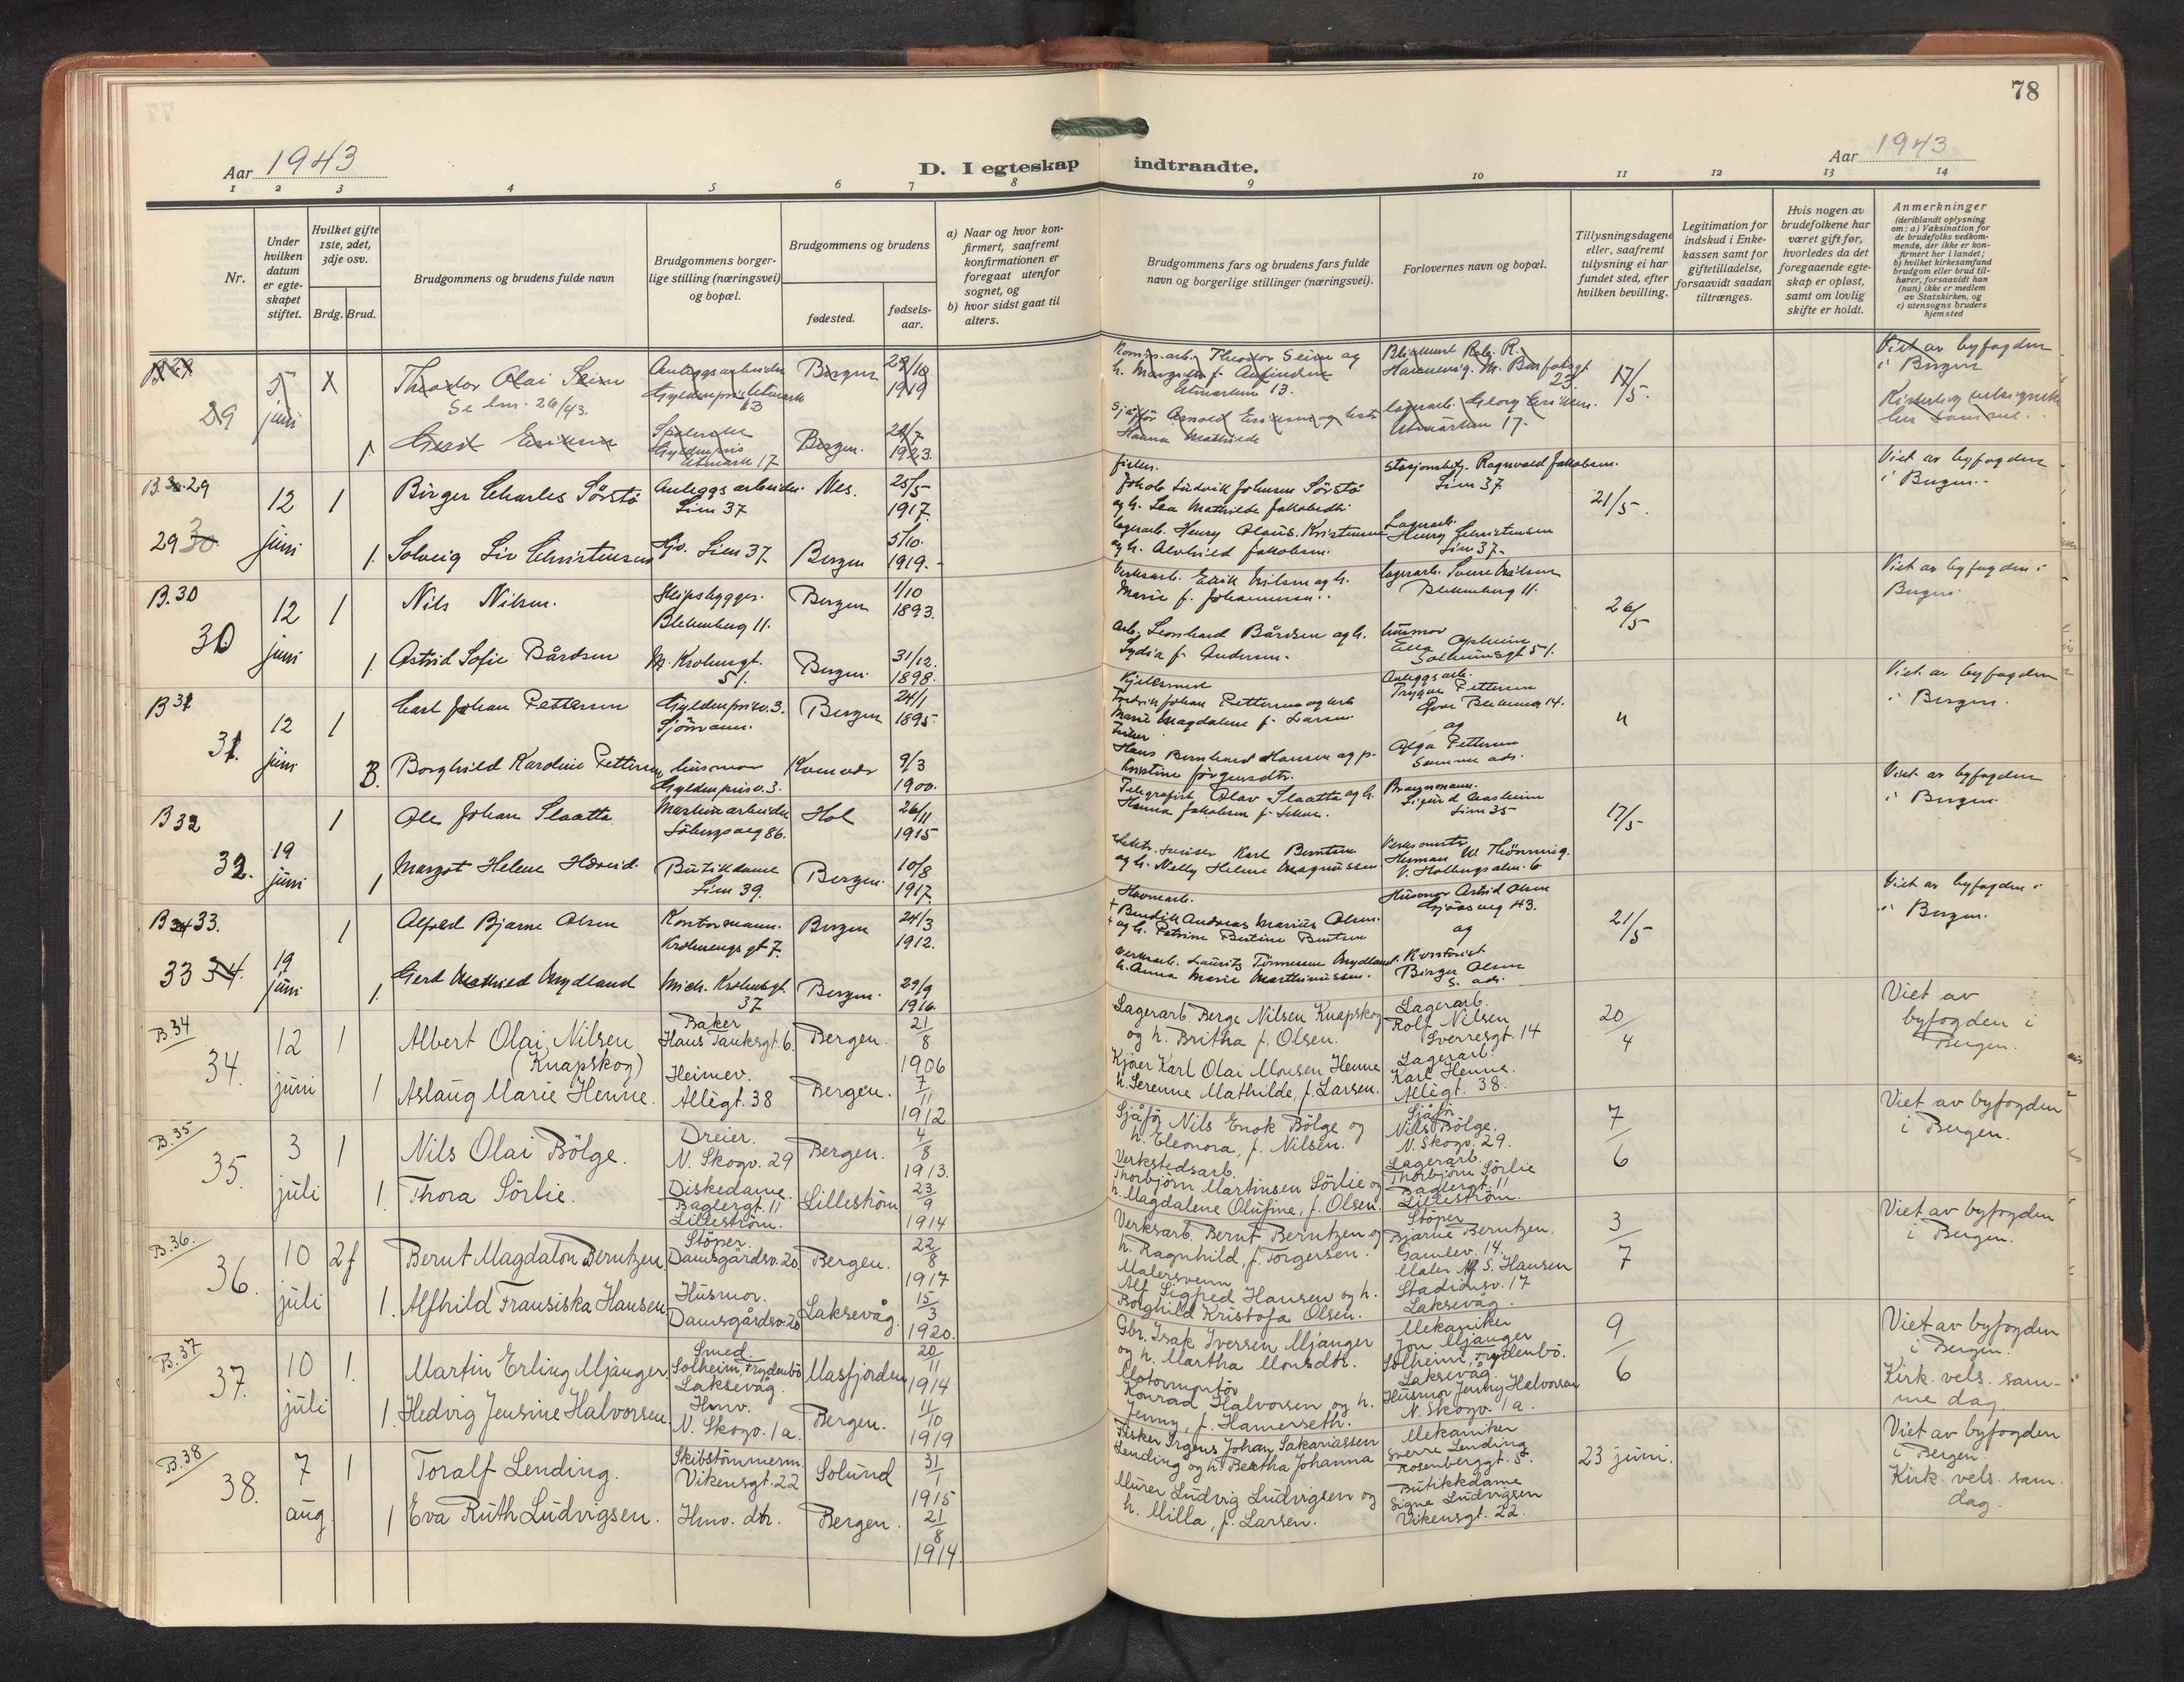 78
Aar 1943
D. I egteskap indtraadte.
Aar 1943
1 2 3 4 5 6 7 8 9 10 11 12 13 14
Nr.
Under hvilken datum er egteskapet stiftet.
Hvilket gifte 1ste, 2det, 3dje osv.
Brdg. Brud.
Brudgommens og brudens fulde navn
Brudgommens borgerlige stilling (næringsvei) og bopæl.
Brudgommens og brudens
fødested.
fødselsaar.
a) Naar og hvor konfirmert, saafremt konfirmationen er foregaat utenfor sognet, og
b) hvor sidst gaat til alters.
Brudgommens fars og brudens fars fulde navn og borgerlige stillinger (næringsvei).
Forlovernes navn og bopæl.
Tillysningsdagene eller, saafremt tillysning ei har fundet sted, efter hvilken bevilling.
Legitimation for indskud i Enkekassen samt for giftetilladelse, forsaavidt saadan tiltrænges.
Hvis nogen av brudefolkene har været gift før, hvorledes da det foregaaende egteskap er opløst, samt om lovlig skifte er holdt.
Anmerkninger
(deriblandt oplysning om: a) Vaksination for de brudefolks vedkommende, der ikke er konfirmert her i landet;
b) hvilket kirkesamfund brudgom eller brud tilhører, forsaavidt han (hun) ikke er medlem av Statskirken, og
c) utensogns bruders hjemsted
29 5 juni Theodor Olai Seim Anleggsarbeider Bergen 1919
Se lnr. 26/43.
Theodor Seim og
Utmarken 13.
17/5
Viet av byfogden
i Bergen
Gerd Eriksen
Utmark 17 Bergen. 1923.
Arnold Eriksen og
Hanna Mathilde
Georg Eriksen.
Utmarken 17.
B. 29
29 12 juni 1 Birger Charles Sørstø Anleggsarbeider. Nes. 25/5 1917.
Lien 37
Jakob Ludvik Johnsen Sørstø
og h. Lea Mathilde Jakobsdtr.
Ragnvald Jakobsen.
Lien 37
21/5.
Viet av byfogden
i Bergen.
1. Solveig Liv Christensen Lien 37. Bergen 5/10. 1919.
Lagerarb. Henry Olaus Kristensen
og h. Alvhild Jakobsen.
Lagerarb.
Henry Christensen
Lien 37.
B. 30
30 12 juni 1 Nils Nilsen. Skipsbygger. Bergen 1/10 1893.
Blekenberg 11.
Verksarb. Erik Nilsen og h.
Marie f. Johannesen.
Lagerarb. Sverre Nilsen
Blekenberg 11.
26/5
Viet av byfogden i
Bergen.
1. Astrid Sofie Bårdsen M. Krohnsgt. 51. Bergen. 31/12. 1898.
Arb. Leonhard Bårdsen og h.
Lydia f. Andersen.
Husmor
Opheim
Solheimsgt 51.
B 31
31. 12 juni 1 Carl Johan Pettersen Gyldenprisv. 3. Bergen 24/1 1895
Sjømann.
Kjelesmed
Fredrik Johan Pettersen og
Marie Magdalene f. Larsen
Anleggsarb.
Trygve Pettersen
Øvre Blekenbg 14.
og
"
Viet av byfogden
i Bergen.
B. Borghild Karoline Pettersen husmor 9/3 1900.
Gyldenprisv. 3.
Fisker
Hans Bernhard Hansen og
Kristine Jørgensdtr.
Olga Pettersen
Samme ads.
B 32
32. 19 juni 1 Ole Johan Slaatta Maskinarbeider Hol 26/11 1915
86.
Telegrafist Olav Slaatta og h.
Hanna Jakobsen
Lien 35
17/5
Viet av byfogden
i Bergen.
1 Margot Helene Butikdame Bergen. 10/8 1917.
Lien 39.
Karl Berntsen
og h. Nelly Helene Magnussen
Herman W. Thönning.
6
B 33.
33 19 juni 1 Alfred Bjarne Olsen Kontormann. Bergen 24/3 1912.
Krohnengsgt 7.
Havnearb.
† Bendik Andreas Marius Olsen.
† og h. Petrine Bertine Bentsen
Husmor Astrid Olsen
43.
og
21/5
Viet av byfogden i
Bergen.
1. Gerd Mathied Mydland Mich. Krohnsgt. 37 Bergen. 29/9 1916.
Verksarb. Lauritz Tønnessen Mydland.
h. Anna Marie Marthinussen.
Kontorist
Birger Olsen
s. ads.
B. 34
34. 12 juni 1 Albert Olai Nilsen (Knapskog) Baker Bergen. 21/8 1906
Haus Tanksgt. 6.
Lagerarb. Berge Nilsen Knapskog
og h. Britha f. Olsen.
Lagerarb.
Rolf Nilsen
Sverresgt. 14
20/4
Viet av
byfogden i
Bergen.
1 Aslaug Marie Henne. Heimev. Bergen. 7/11 1912
Allégt. 38
Kjører Karl Olai Monsen Henne
h. Serenne Mathilde, f. Larsen.
Lagerarb.
Karl Henne.
Allégt. 38.
B. 35
35. 3 juli 1 Nils Olai Bölge. Dreier. Bergen. 4/8 1913.
N. Skogv. 29
Sjåfør Nils Enok Bölge og
h. Eleonora, f. Nilsen.
Sjåfør
Nils Bölge.
N. Skogv. 29.
7/6
Viet av byfogden
i Bergen.
1. Thora Sörlie. Diskedame. Lilleström 23/9 1914
Baglergt. 11
Lilleström.
Verkstedsarb.
Thorbjörn Martinsen Sörlie og
h. Magdalene Olufine, f. Olsen.
Lagerarb.
Thorbjörn Sörlie
Baglergt. 11
Lilleström.
B. 36.
36. 10 juli 2f Bernt Magdalon Berntzen. Støper. Bergen. 22/8 1917
Damsgårdsv. 20
Verksarb. Bernt Berntzen og
h. Ragnhild, f. Torgersen.
Støper
Bjarne Berntzen.
Gamlev. 14.
3/7
Viet av byfogden
i Bergen.
1. Alfhild Fransiska Hansen Husmor. Laksevåg. 15/3 1920.
Damsgårdsv. 20
Malersvenn
Alf Sigfred Hansen og h.
Borghild Kristofa Olsen.
Maler A. S. Hansen
Stadionsv. 17
Laksevåg.
B. 37
37. 10 juli 1. Martin Erling Mjanger. Smed. Masfjorden 20/11 1914
Solheim, Frydenbö
Laksevåg.
Gbr. Isak Iversen Mjanger
og h. Martha Monsdtr.
Mekaniker
Jon Mjanger
Solheim, Frydenbö.
Laksevåg.
9/6
Viet av byfogden
i Bergen.
Kirk. vels. samme dag.
1. Hedvig Jensine Halvorsen. Hmv. Bergen. 11/10 1919
N. Skogv. 1a.
Motormontør
Konrad Halvorsen og h.
Jenny, f. Hamerseth.
Husmor Jenny Halvorsen
N. Skogv. 1a.
B. 38
38. 7 aug 1 Toralf Lending. Skibstömmerm. Solund 31/1 1915
Vikensgt. 22
Fisker Irgens Johan Sakariassen
Lending og h. Bertha Johanna
Mekaniker
Sverre Lending
Rosenberggt. 5.
23 juni.
Viet av byfogden
i Bergen.
Kirk. vels. sam. dag.
1 Eva Ruth Ludvigsen. Hmv. dtr. Bergen. 21/8 1914.
Murer Ludvig Ludvigsen og
h. Milla, f. Larsen.
Butikkdame
Signe Ludvigsen
Vikensgt. 22.